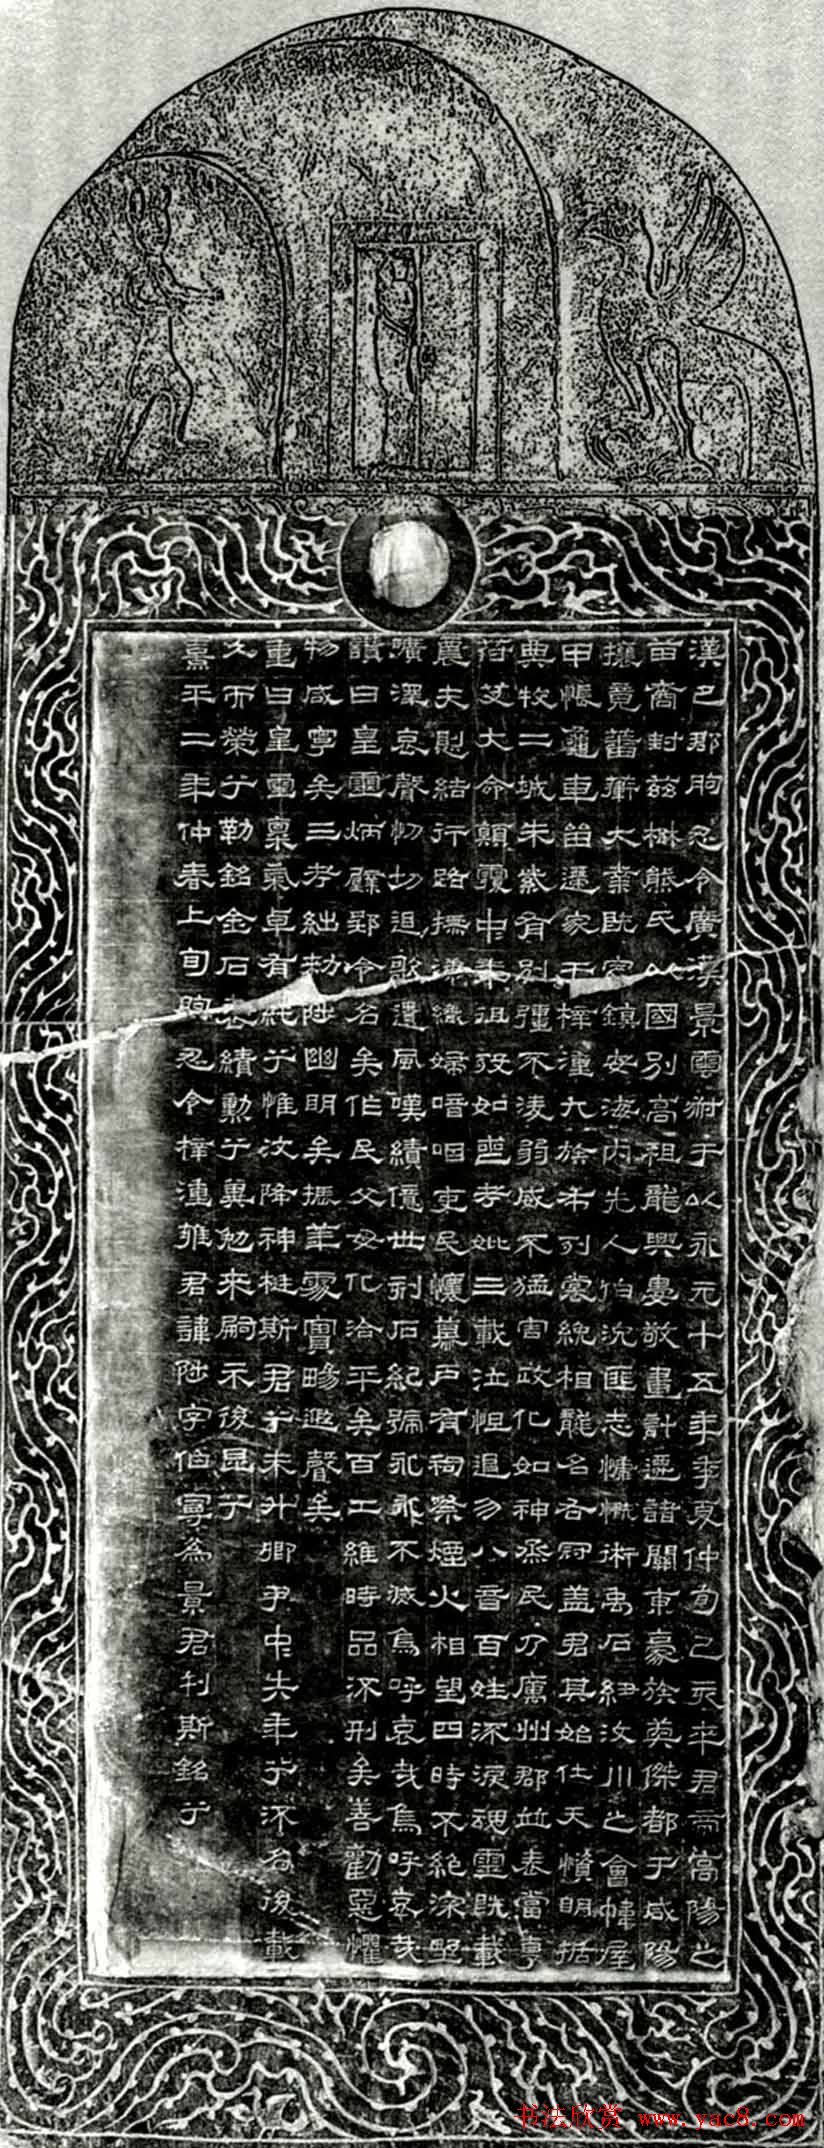 漢巴郡朐忍令廣漢景雲叔于以永元十五年季夏仲旬己亥卒君帝高陽之
苗裔封兹楚熊氏以國別高祖龍興婁敬畫計遷諸關東豪族英傑都于咸陽
攘竟蕃衛大業既定鎮安海內先人伯沇匪志慷慨術禹石紐汶川之會幃屋
甲帳龜車留遷家于梓潼九族布列裳絻相龍名右冠盖君其始仕天資明括
典牧二城朱紫有別彊不凌弱威不猛害政化如神蒸民乃厲州郡並表當享
符艾大命顛覆中年徂歿如喪考妣三載泣怛遏勿八音百姓流淚魂靈既載
農夫恻結行路撫涕織婦喑咽吏民懷慕户有祠祭煙火相望四時不絕深野
曠澤哀聲忉切追歌遺風嘆績億世刻石紀號永永不滅烏呼哀哉烏呼哀哉
讚曰皇靈炳璧郢令名矣作民父母化洽平矣百工維時品流刑矣善勸惡懼
物咸寧矣三考絀敕陟幽明矣振華處實暢遐聲矣
重曰皇靈稟氣卓有純兮惟汶降神梃斯君兮未升卿尹中失年兮流名後載
久而榮兮勒銘金石表績勳兮冀勉來嗣不後昆兮
熹平二年仲春上旬朐忍令梓潼雍君諱陟字伯寧為景君刊斯銘兮
书法欣赏 www.yac8.com